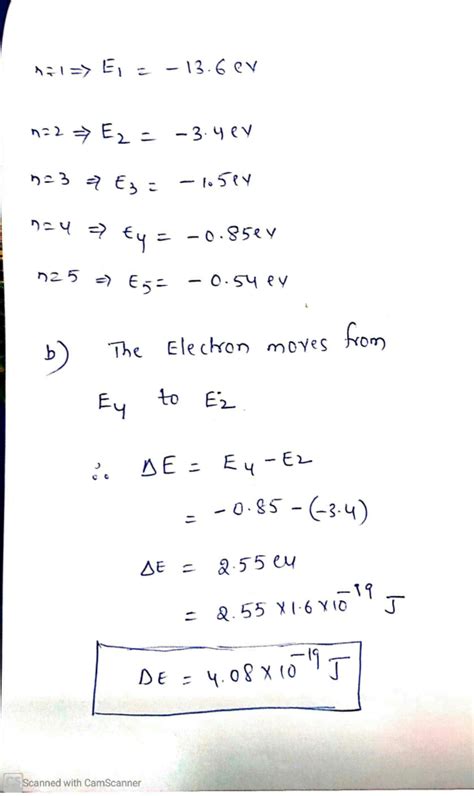 n=1 ⇒ E₁ = -13.6 ev
n=2 ⇒ E₂ = -3.4 ev
n=3 ⇒ E₃ = -1.5 ev
n=4 ⇒ E₄ = -0.85 ev
n=5 ⇒ E₅ = -0.54 ev
b) The Electron moves from
E₄ to E₂
∴ ΔE = E₄ - E₂
= -0.85 - (-3.4)
ΔE = 2.55 eV
= 2.55 × 1.6 × 10⁻¹⁹ J
ΔE = 4.08 × 10⁻¹⁹ J
CS Scanned with CamScanner